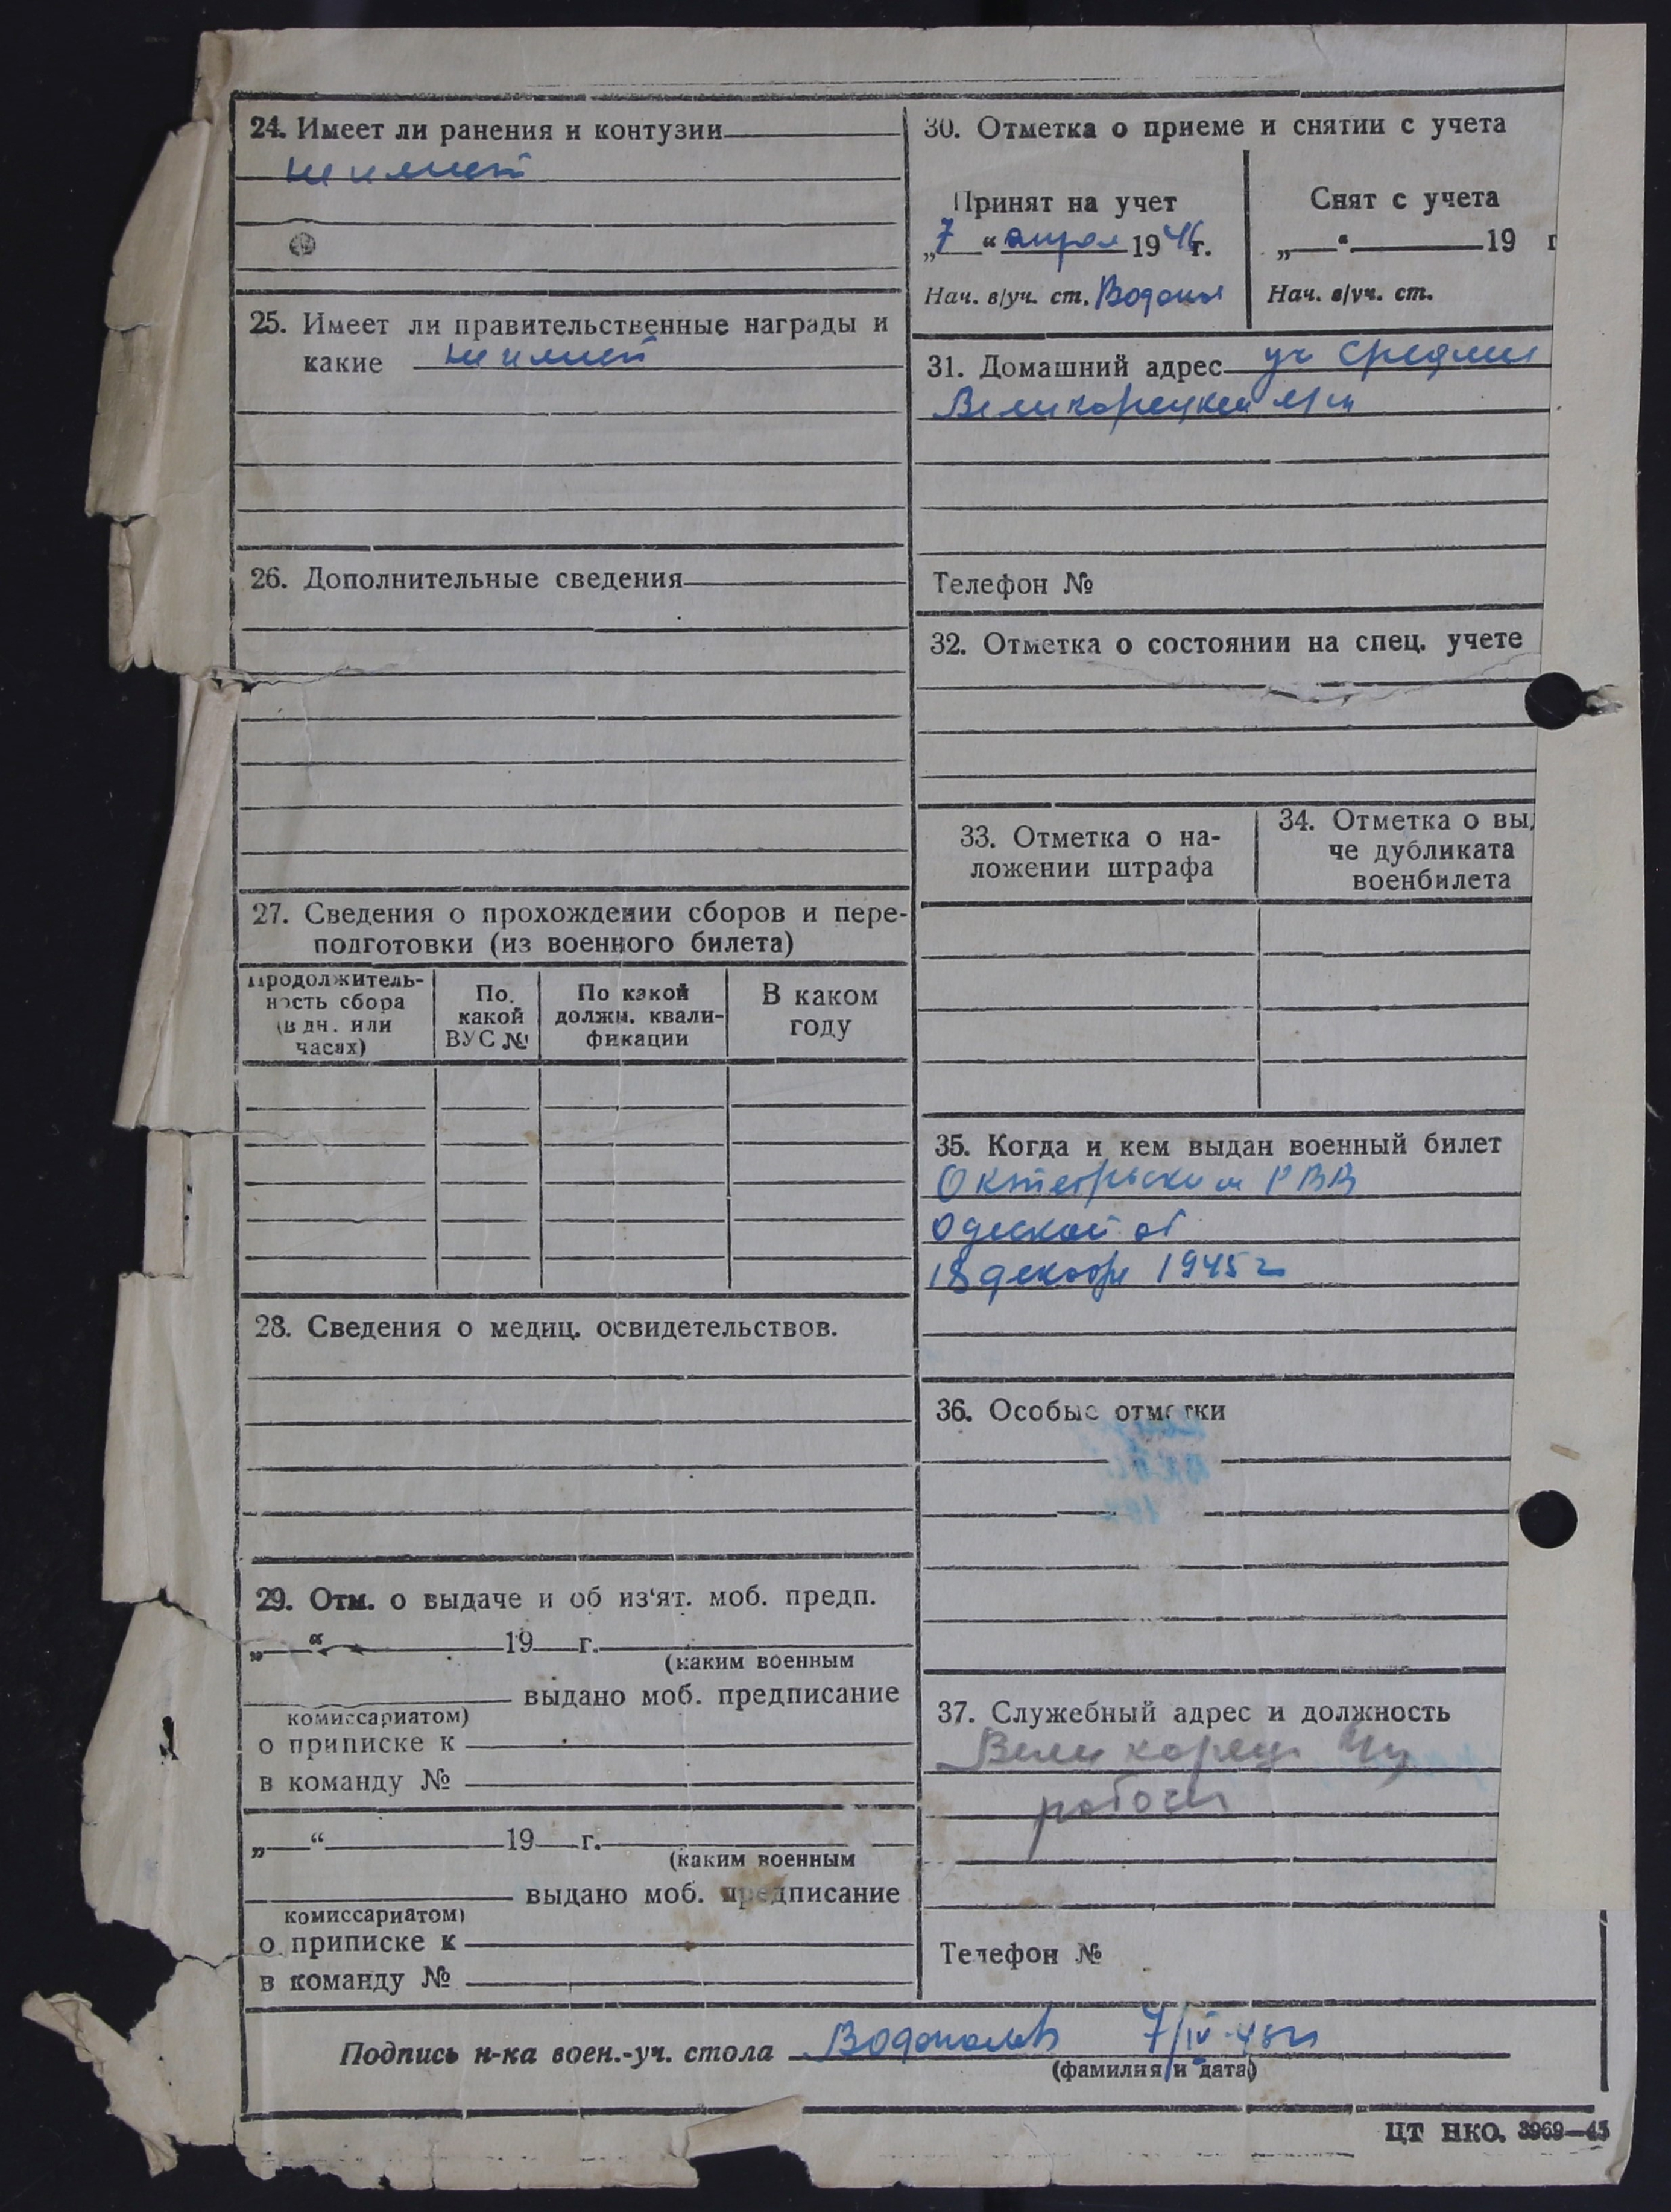 24. Имеет ли ранения и контузии
не имеет
25. Имеет ли правительственные награды и
какие не имеет
26. Дополнительные сведения
27. Сведения о прохождении сборов и пере-
подготовки (из военного билета)
Продолжитель-
ность сбора
(в дн. или
часах)
По
какой
ВУС №
По какой
должн. квали-
фикации
В каком
году
28. Сведения о медиц. освидетельствов.
29. Отм. о выдаче и об из'ят. моб. предп.
„ “ 19 г.
(каким военным
выдано моб. предписание
комиссариатом)
о приписке к
в команду №
„ “ 19 г.
(каким военным
выдано моб. предписание
комиссариатом)
о приписке к
в команду №
30. Отметка о приеме и снятии с учета
Принят на учет
„7“ апреля 1946г.
Нач. в/уч. ст.
Снят с учета
„ “ 19 г
Нач. в/уч. ст.
31. Домашний адрес уч Средний
Великорецкий
Телефон №
32. Отметка о состоянии на спец. учете
33. Отметка о на-
ложении штрафа
34. Отметка о вы
че дубликата
военбилета
35. Когда и кем выдан военный билет
Октябрьским РВК
Одеской об
18 декабр 1945 г
36. Особые отметки
37. Служебный адрес и должность
Великорец
рабочий
Телефон №
Подпись н-ка воен.-уч. стола 7/IV-
(фамилия и дата)
ЦТ НКО. 3969—45